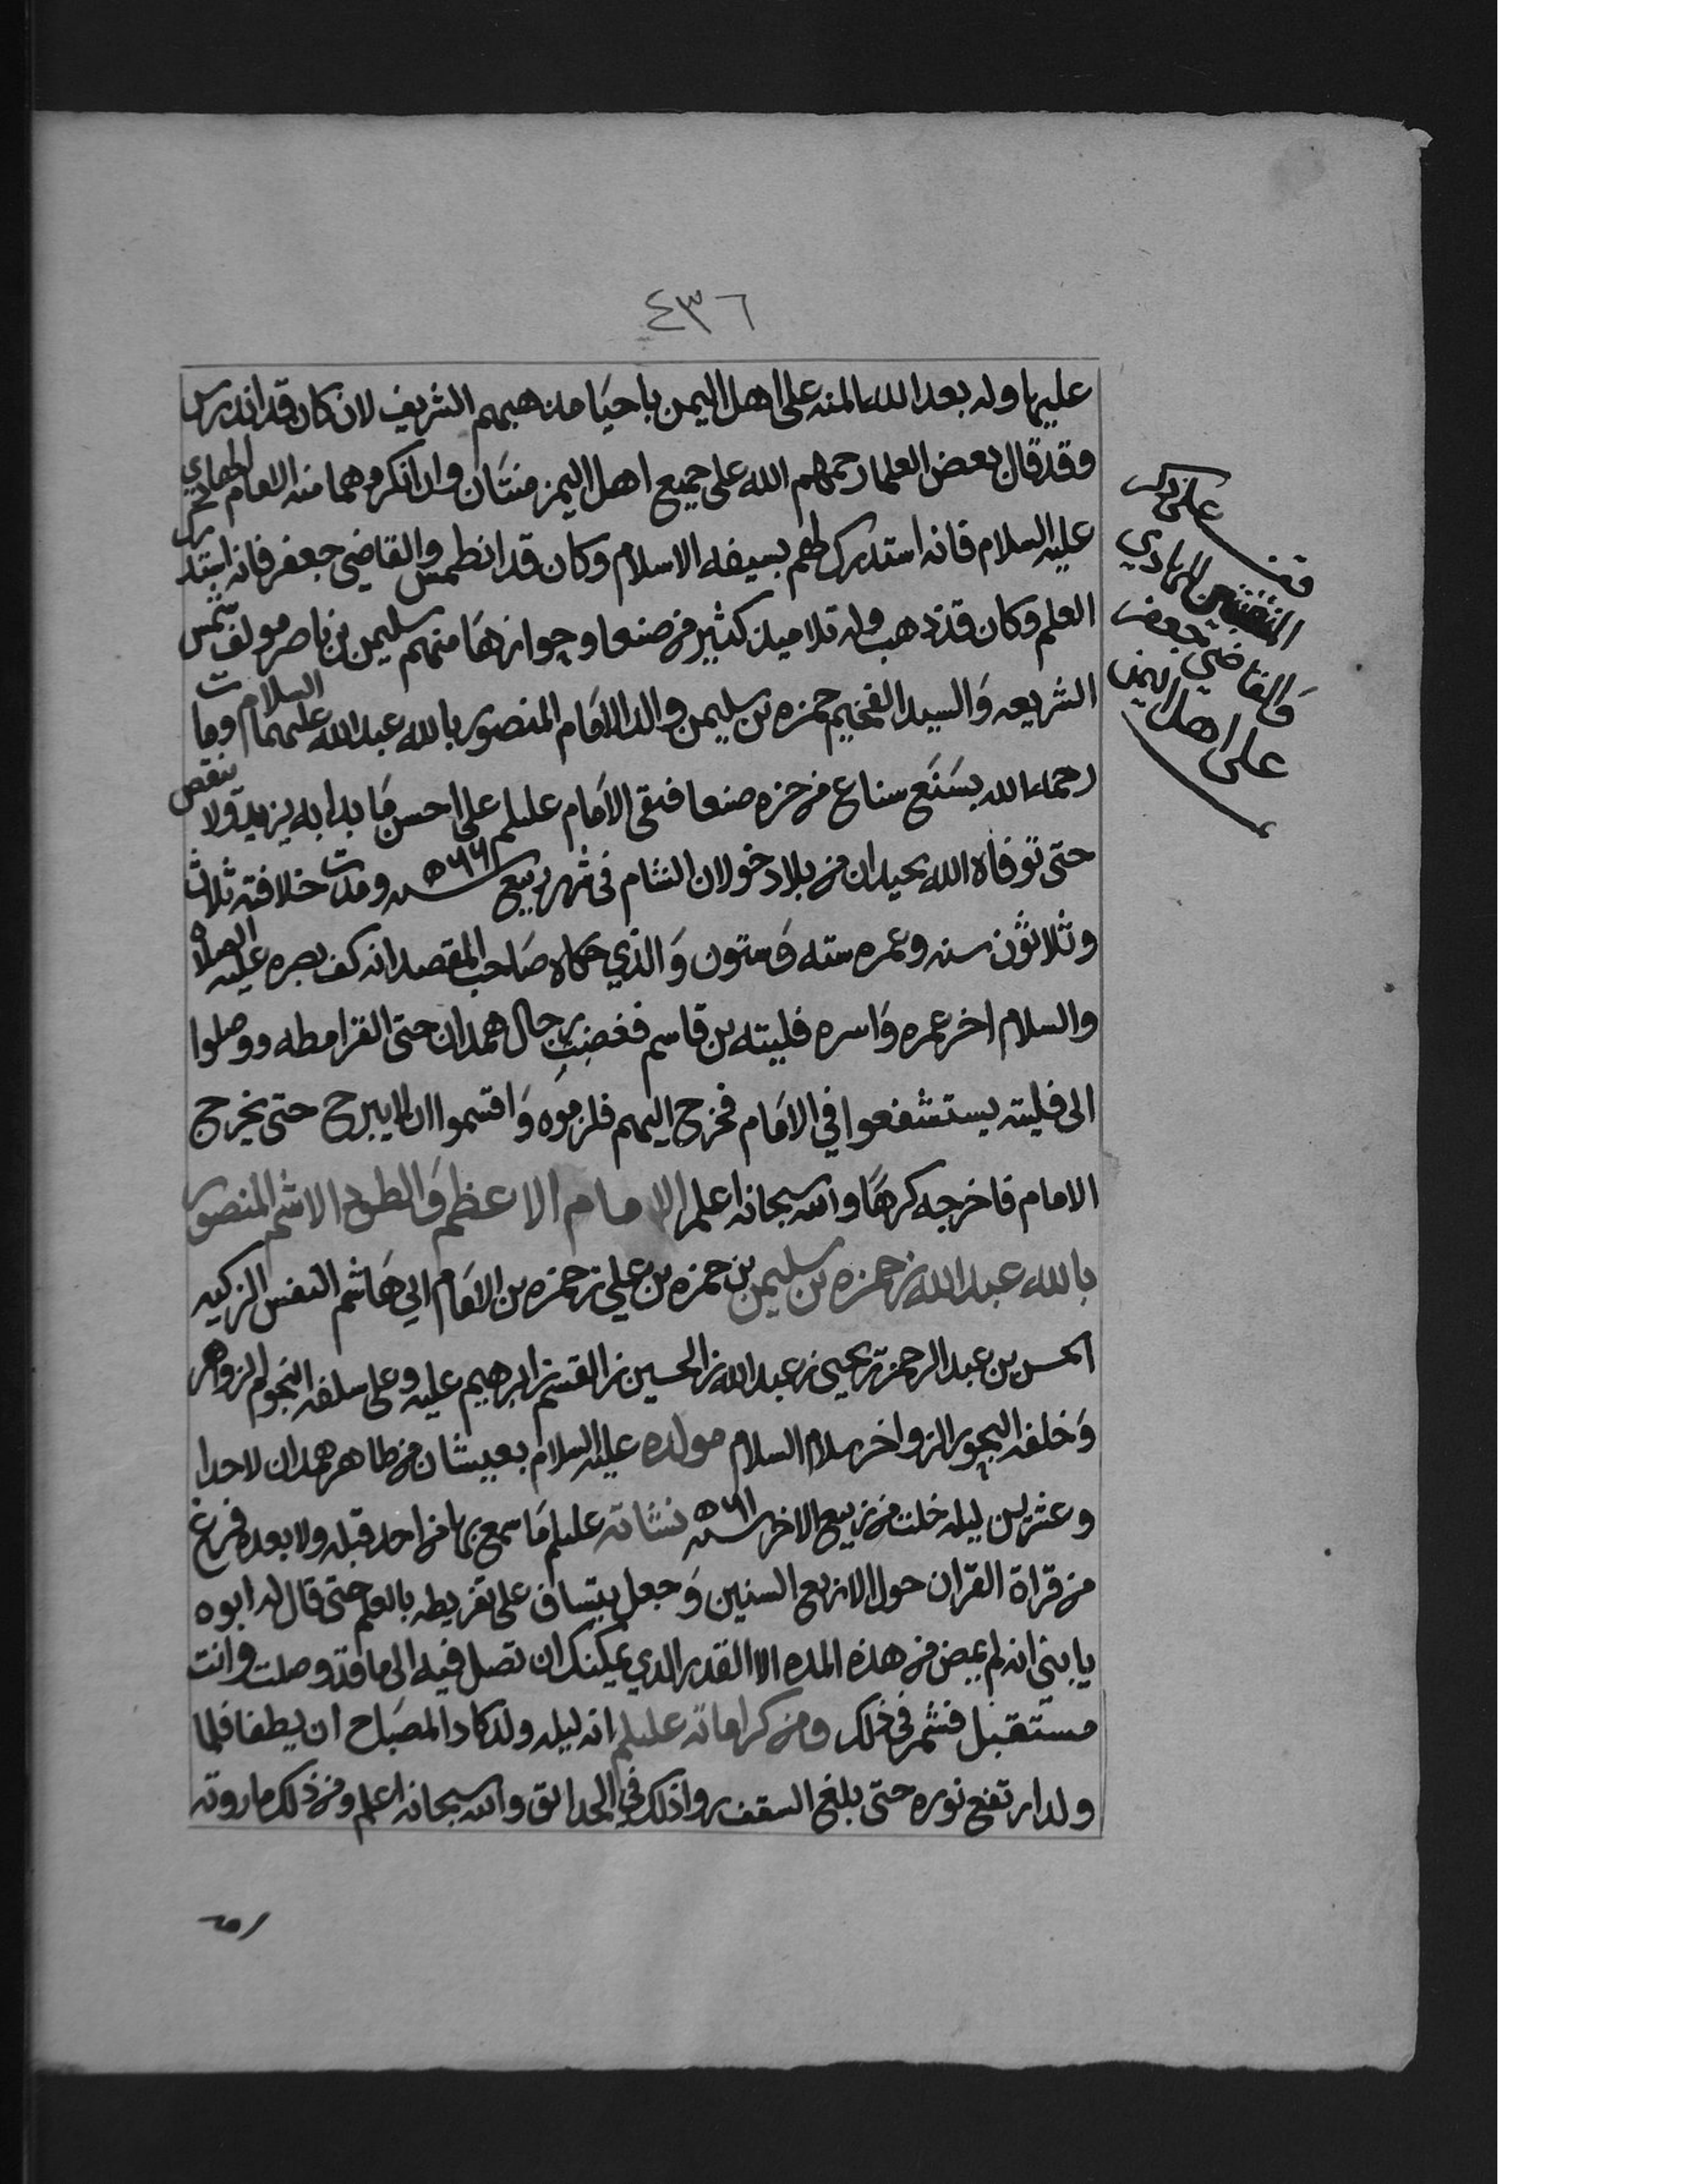 ٤٣٦
عليها وله بعد الله المنه على اهل اليمن باحيا مذهبهم الشريف لانه كان قد اندرس
وقد قال بعض العلما رحمهم الله على جميع اهل اليمن منتان وان انكروهما منه الامام الهادي
عليه السلام فانه استدرك لهم بسيفه الاسلام وكان قد انطمس والقاضي جعفر فانه استدرك لهم
العلم وكان قد ذهب وله تلاميذ كثير في صنعا وجوانزها منهم سليمن بن ناصر مولف شمس
الشريعه والسيد الفخيم حمزه بن سليمن والد الامام المنصور بالله عبدالله عليهما السلام ومات
رحمه الله بسنع سناع من حزه صنعا فبقى الامام عليلم على احسن ما بدا به يزيد ولا ينقص
حتى توفاه الله بحيدان من بلاد خولان الشام في شهر ربيع سنه ٥٦٦ ومدت خلافته ثلاث
وثلاثون سنه وعمره سته وستون والذي حكاه صاحب المقصد انه كف بصره عليه الصلاه
والسلام اخر عمره واسره فليته بن قاسم فغضبت رجال همدان حتى القرامطه ووصلوا
الى فليته يستشفعوا في الامام فخرج اليهم فلزموه واقسموا ان لا يبرح حتى يخرج
الامام فاخرجه كرها والله سبحانه اعلم الامام الاعظم والطود الاشم المنصور
بالله عبدالله بن حمزه بن سليمن بن حمزه بن علي بن حمزه بن الامام ابي هاشم النفس الزكيه
الحسن بن عبد الرحمن بن يحيى بن عبدالله بن الحسين بن القسم بن ابرهيم عليه وعلى سلفه النجوم الزواهر
وخلفه البحور الزواخر سلام السلام مولده عليه السلام بعيشان من ظاهر همدان لاحدا
وعشرين ليله خلت من ربيع الاخر سنه ٥٦١ نشاته عليلم ما سمع بها من احد قبله ولا بعده فرغ
من قراة القران حول الاربع السنين وجعل يتساف على تفريطه بالعلم حتى قال له ابوه
يا بني انه لم يمض من هذه المده الا القدر الذي يمكنك ان تصل فيه الى ما قد وصلت وانت
مستقبل فشمر في ذلك ومن كراماته عليلم انه ليله ولد كاد المصباح ان يطفا فلما
ولد ارتفع نوره حتى بلغ السقف روا ذلك في الحدائق والله سبحانه اعلم ومن ذلك ما روته
قف على ذكر
المنتين الهادي
والقاضي جعفر
على اهل اليمن